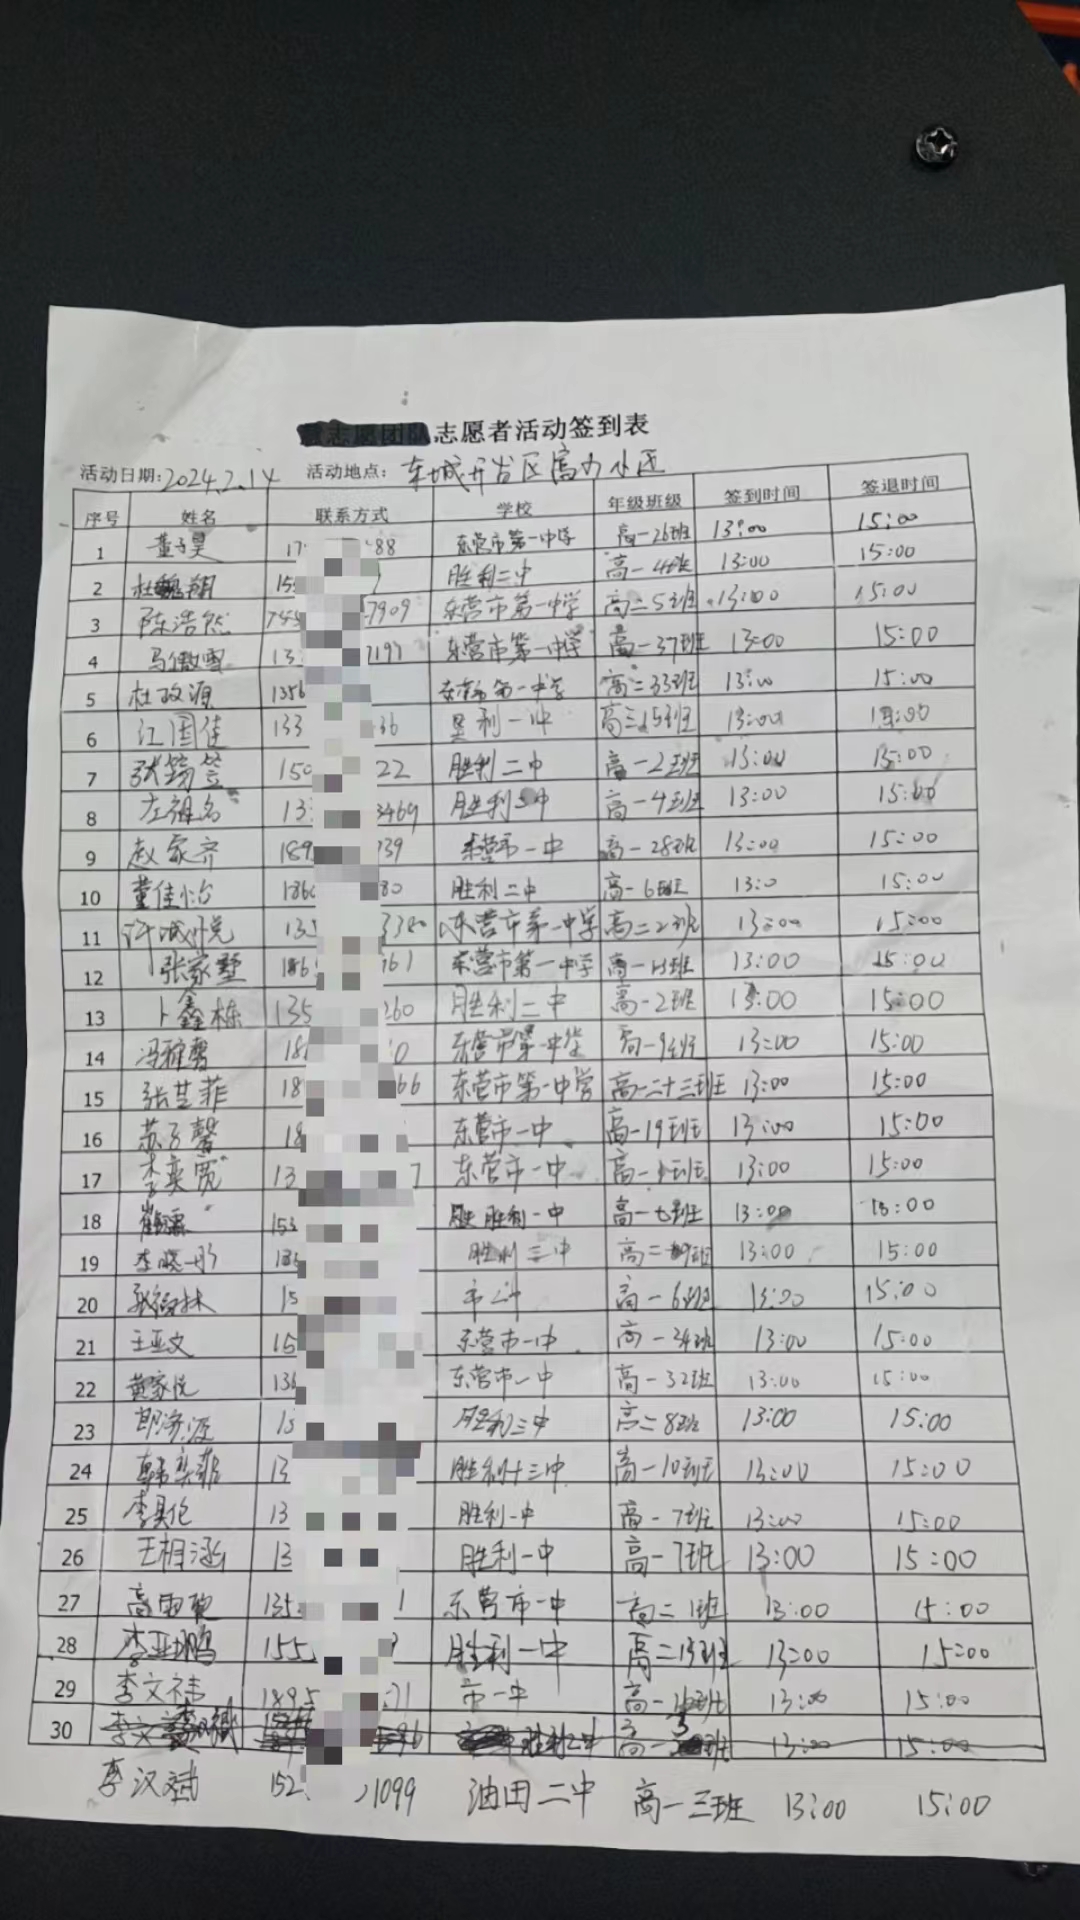 志愿团队志愿者活动签到表
活动日期:2024.2.14 活动地点: 东城开发区富力小区
序号 姓名 联系方式 学校 年级班级 签到时间 签退时间
1 董子昊 17 88 东营市第一中学 高一26班 13:00 15:00
2 杜魏翔 155 胜利二中 高一4班 13:00 15:00
3 陈浩然 7909 东营市第一中学 高二5班 13:00 15:00
4 马傲雪 13 7197 东营市第一中学 高一37班 13:00 15:00
5 杜政源 1356 东营市第一中学 高二33班 13:00 15:00
6 江国佳 133 36 垦利一中 高三15班 13:00 15:00
7 张 150 22 胜利二中 高一2班 13:00 15:00
8 左祖名 13 3469 胜利 中 高一4班 13:00 15:00
9 赵家齐 189 739 东营市一中 高一28班 13:00 15:00
10 董佳怡 1860 80 胜利二中 高一6班 13:0 15:00
11 许诚悦 135 3380 东营市第一中学 高二2班 13:00 15:00
12 张家墅 186 961 东营市第一中学 高一13班 13:00 15:00
13 卜鑫栋 135 260 胜利二中 高一2班 13:00 15:00
14 冯雅馨 18 0 东营市第一中学 高一9班 13:00 15:00
15 张芷菲 18 66 东营市第一中学 高一二十三班 13:00 15:00
16 苏子馨 18 东营市一中 高一19班 13:00 15:00
17 李奕宽 13 7 东营市一中 高一 班 13:00 15:00
18 153 胜利一中 高一七班 13:00 15:00
19 李晓彤 186 胜利三中 高二 班 13:00 15:00
20 张 林 15 市 高一6班 13:00 15:00
21 王亚文 15 东营市一中 高一24班 13:00 15:00
22 黄家悦 136 东营市一中 高一32班 13:00 15:00
23 13 胜利三中 高二8班 13:00 15:00
24 韩奕菲 13 胜利十三中 高一10班 13:00 15:00
25 李昊伦 13 胜利一中 高一7班 13:00 15:00
26 王相涵 13 胜利一中 高一7班 13:00 15:00
27 高 135 1 东营市一中 高二1班 13:00 15:00
28 李亚鹏 155 胜利一中 高二13班 13:00 15:00
29 李文祎 1895 71 市一中 高一 班 13:00 15:00
30 李文 96 胜利二中 高一3班 13:00 15:00
李汉斌 152 1099 油田二中 高一三班 13:00 15:00